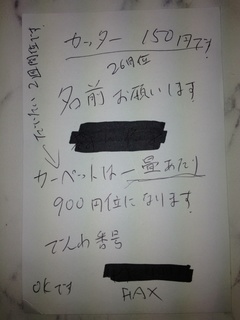 カッター 150円です
26日位
名前 お願いします
カーペットは一畳あたり
900円位になります
でんわ番号
OKです
FAX
だいたい2週間位です